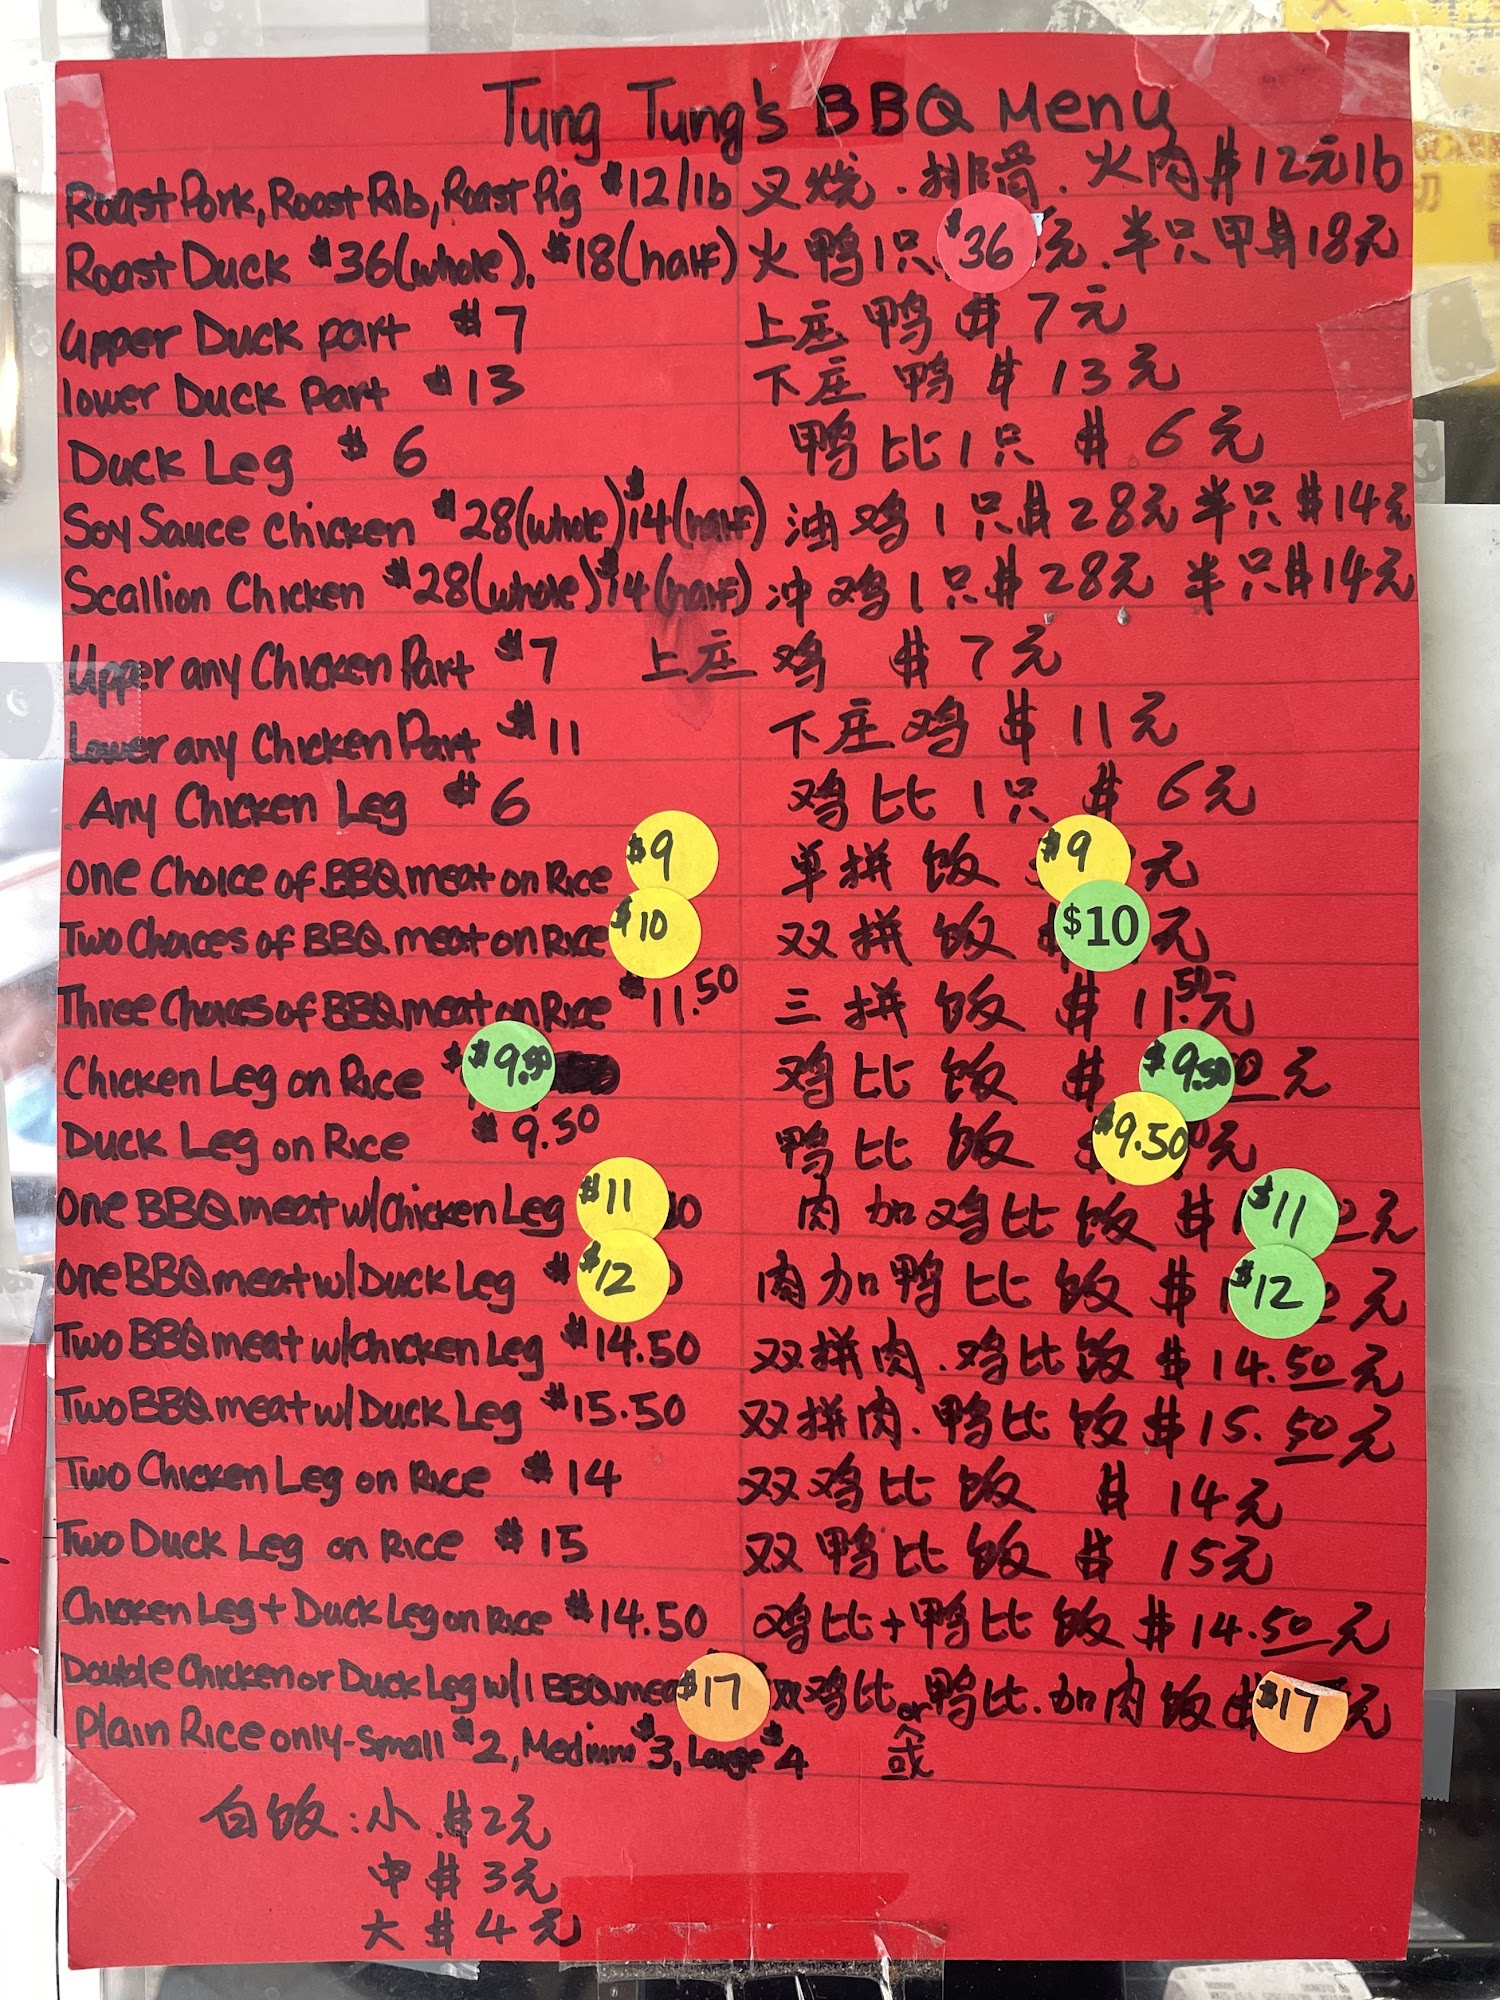 Tung Tung's BBQ Menu
Roast Pork, Roast Rib, Roast Pig $12/lb 叉烧.排骨.火肉$12元lb
Roast Duck $36(whole), $18(half) 火鸭1只 $36元.半只甲$18元
Upper Duck part $7 上庄鸭$7元
lower Duck Part $13 下庄鸭$13元
Duck Leg $6 鸭比1只$6元
Soy Sauce Chicken $28(whole)$14(half) 油鸡1只$28元半只$14元
Scallion Chicken $28(whole)$14(half) 冲鸡1只$28元半只$14元
Upper any Chicken Part $7 上庄鸡$7元
Lower any Chicken Part $11 下庄鸡$11元
Any Chicken Leg $6 鸡比1只$6元
One Choice of BBQ meat on Rice $9 单拼饭$9元
Two Choices of BBQ meat on Rice $10 双拼饭$10元
Three Choices of BBQ meat on Rice $11.50 三拼饭$11.50元
Chicken Leg on Rice $9.50 鸡比饭$9.50元
Duck Leg on Rice $9.50 鸭比饭$9.50元
One BBQ meat w/Chicken Leg $11 肉加鸡比饭$11元
One BBQ meat w/Duck Leg $12 肉加鸭比饭$12元
Two BBQ meat w/Chicken Leg $14.50 双拼肉.鸡比饭$14.50元
Two BBQ meat w/Duck Leg $15.50 双拼肉.鸭比饭$15.50元
Two Chicken Leg on Rice $14 双鸡比饭$14元
Two Duck Leg on Rice $15 双鸭比饭$15元
Chicken Leg + Duck Leg on Rice $14.50 鸡比+鸭比饭$14.50元
Double Chicken or Duck Leg w/1 BBQ meat $17 双鸡比or鸭比.加肉饭$17元
Plain Rice only-Small $2, Medium $3, Large $4 或
白饭:小$2元
中$3元
大$4元